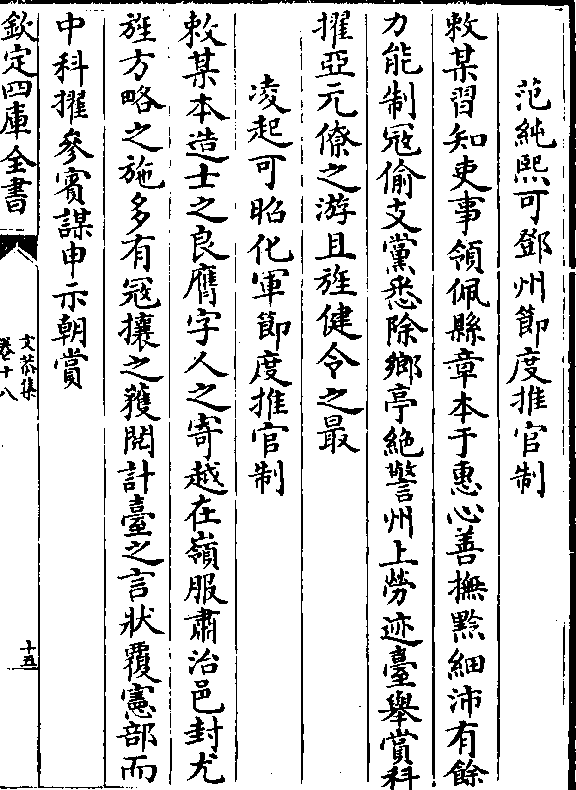 范純熙可鄧州節度推官制
敕某習知吏事領佩縣章本于惠心善撫黔細沛有餘
力能制冦偷支黨悉除鄉亭絶警州上勞迹臺舉賞科
擢亞元僚之游且旌健令之最
凌起可昭化軍節度推官制
敕某本造士之良膺字人之寄越在嶺服肅治邑封尤
旌方略之施多有冦攘之獲閲計臺之言狀覆憲部而
中科擢參賓謀申示朝賞
欽定四庫全書
文恭集
卷十八
十五